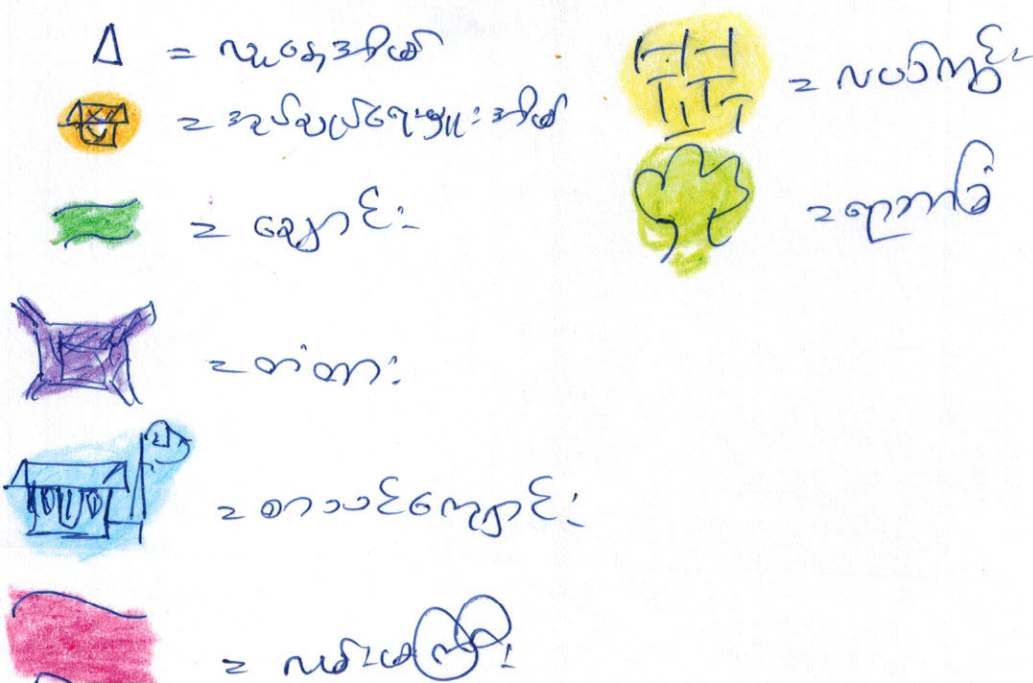 = လူနေအိမ်
= အုပ်ချုပ်ရေးမှူးအိမ်
= ချောင်း
= တံတား
= စာသင်ကျောင်း
= လမ်းမကြီး
= လယ်ကွင်း
= ရာဘာခြံ